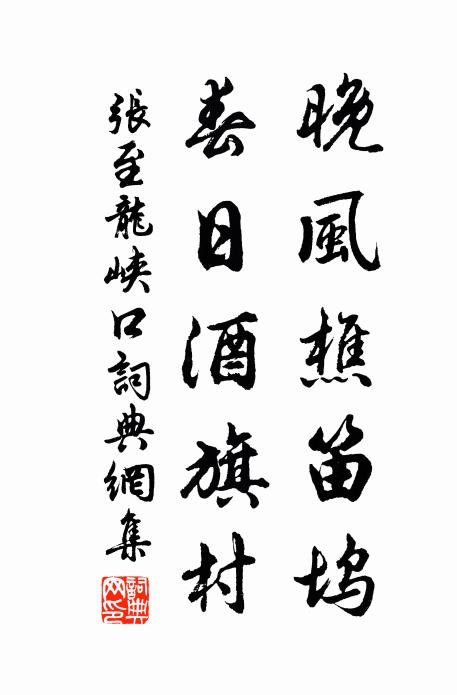 晚風樵笛塢
春日酒旗村
張至龍峽口詞典網集
詞典網印